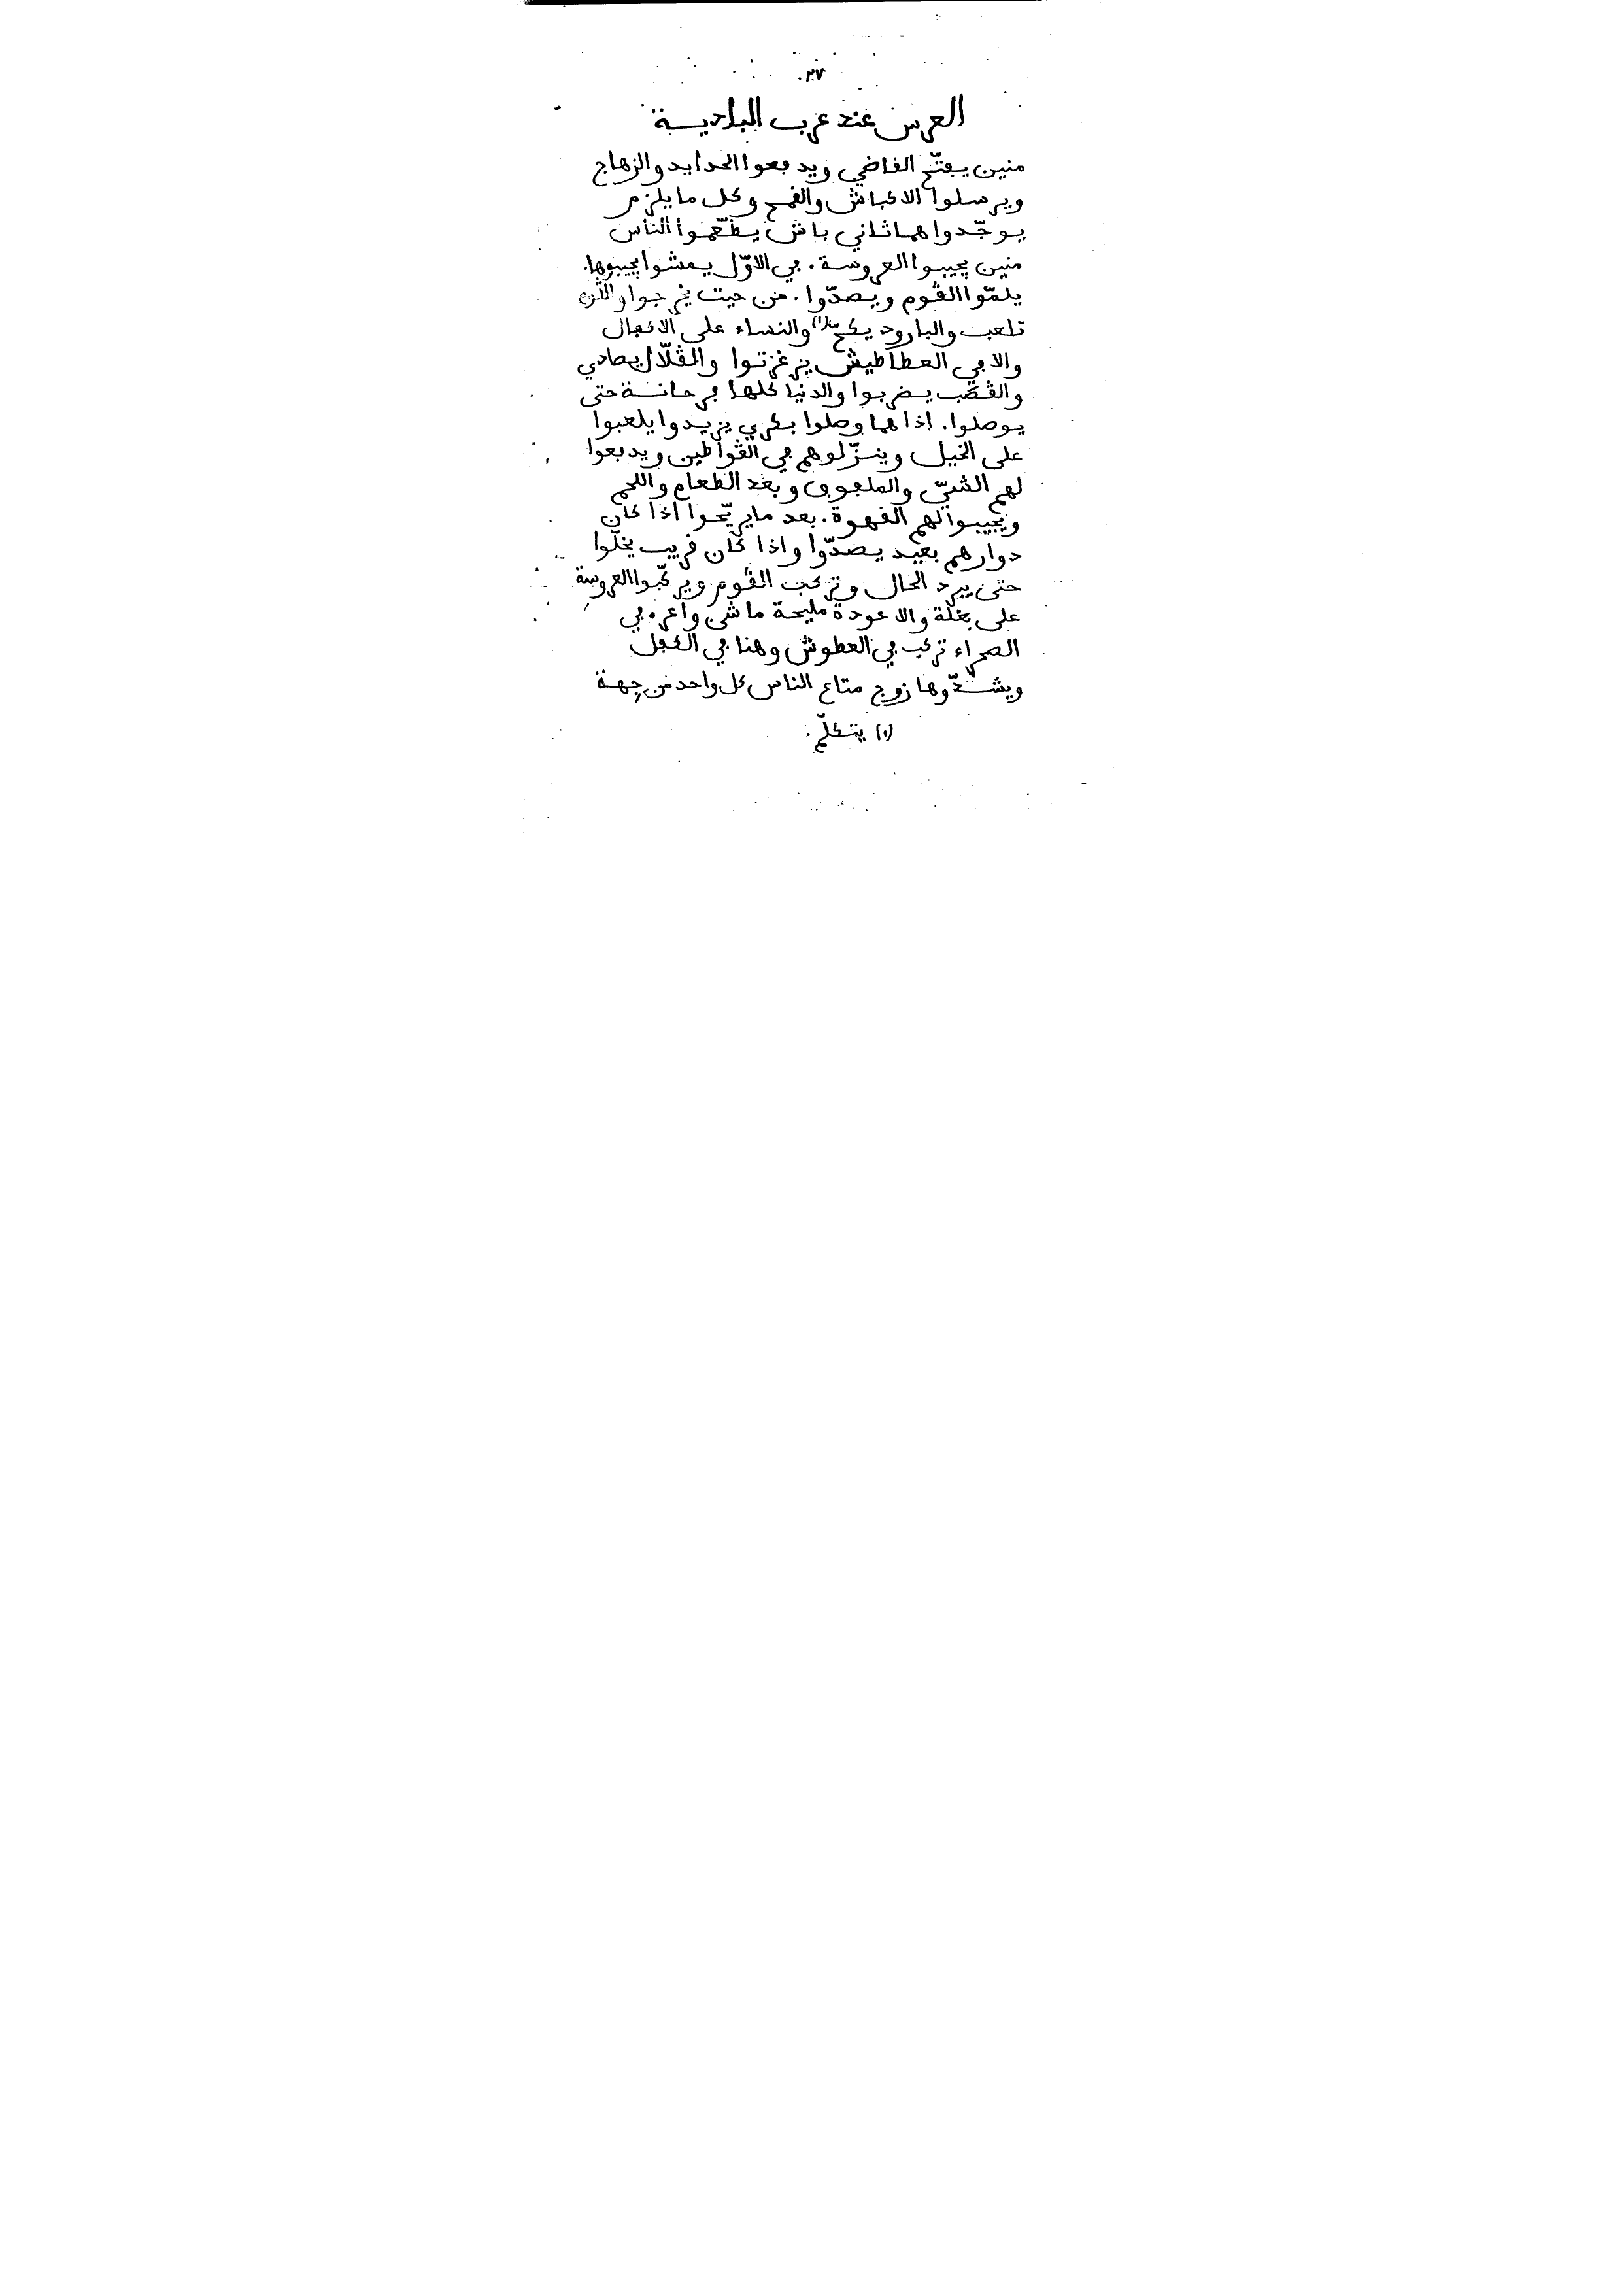 ٢٧.
العرس عند عرب البادية
منين يڢتّح الڧاضي ويدڢعوا الحدايد والزهاج
ويرسلوا الاكباش والڧمح وكل ما يلزم
يوجّدوا هما ثاني باش يطّعموا الناس
منين يجيبوا العروسة. ڢي الاوّل يمشوا يجيبوها.
يلمّوا الڨوم ويصدّوا. من حيت يخرجوا و
تلعب والبارود (١) والنساء على الاعجال
والا ڢي العطاطيش يزغرتوا والڨلّال يصادي
والڨصب يضربوا والدنيا كلها ڢرحانة حتى
يوصلوا. اذا هما وصلوا بكري يزيدوا يلعبوا
على الخيل وينزّلوهم ڢي الڨواطين ويدڢعوا
لهم الشيّ والملعوڧ وبعد الطعام واللحم
ويجيبوا لهم الڧهوة. بعد ما يريّحوا اذا كان
دوارهم بعيد يصدّوا واذا كان ڧريب يخلّوا
حتى يبرد الحال وتركب الڨوم ويركّبوا العروسة
على بغلة والا عودة مليحة ماشي واعره. ڢي
الصحراء تركب ڢي العطوش وهنا ڢي
ويشدّوها زوج متاع الناس كل واحد من جهة
(١) يتكلّم.